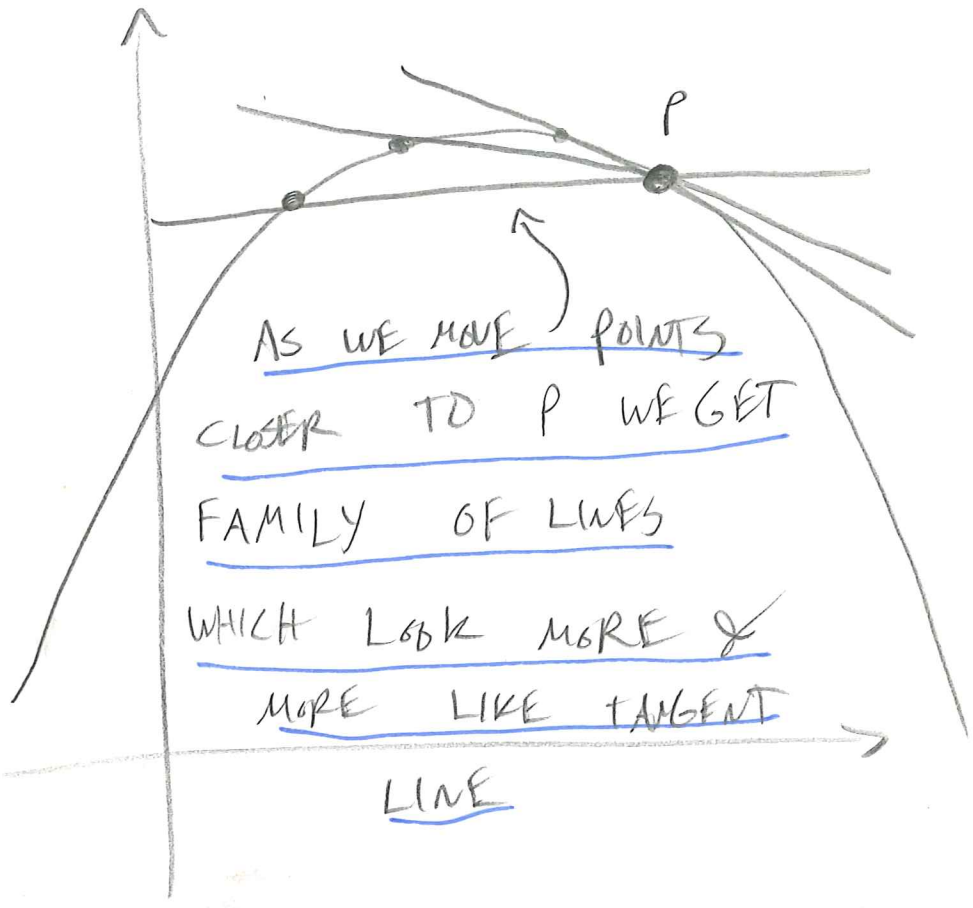 P
AS WE MOVE POINTS
CLOSER TO P WE GET
FAMILY OF LINES
WHICH LOOK MORE &
MORE LIKE TANGENT
LINE